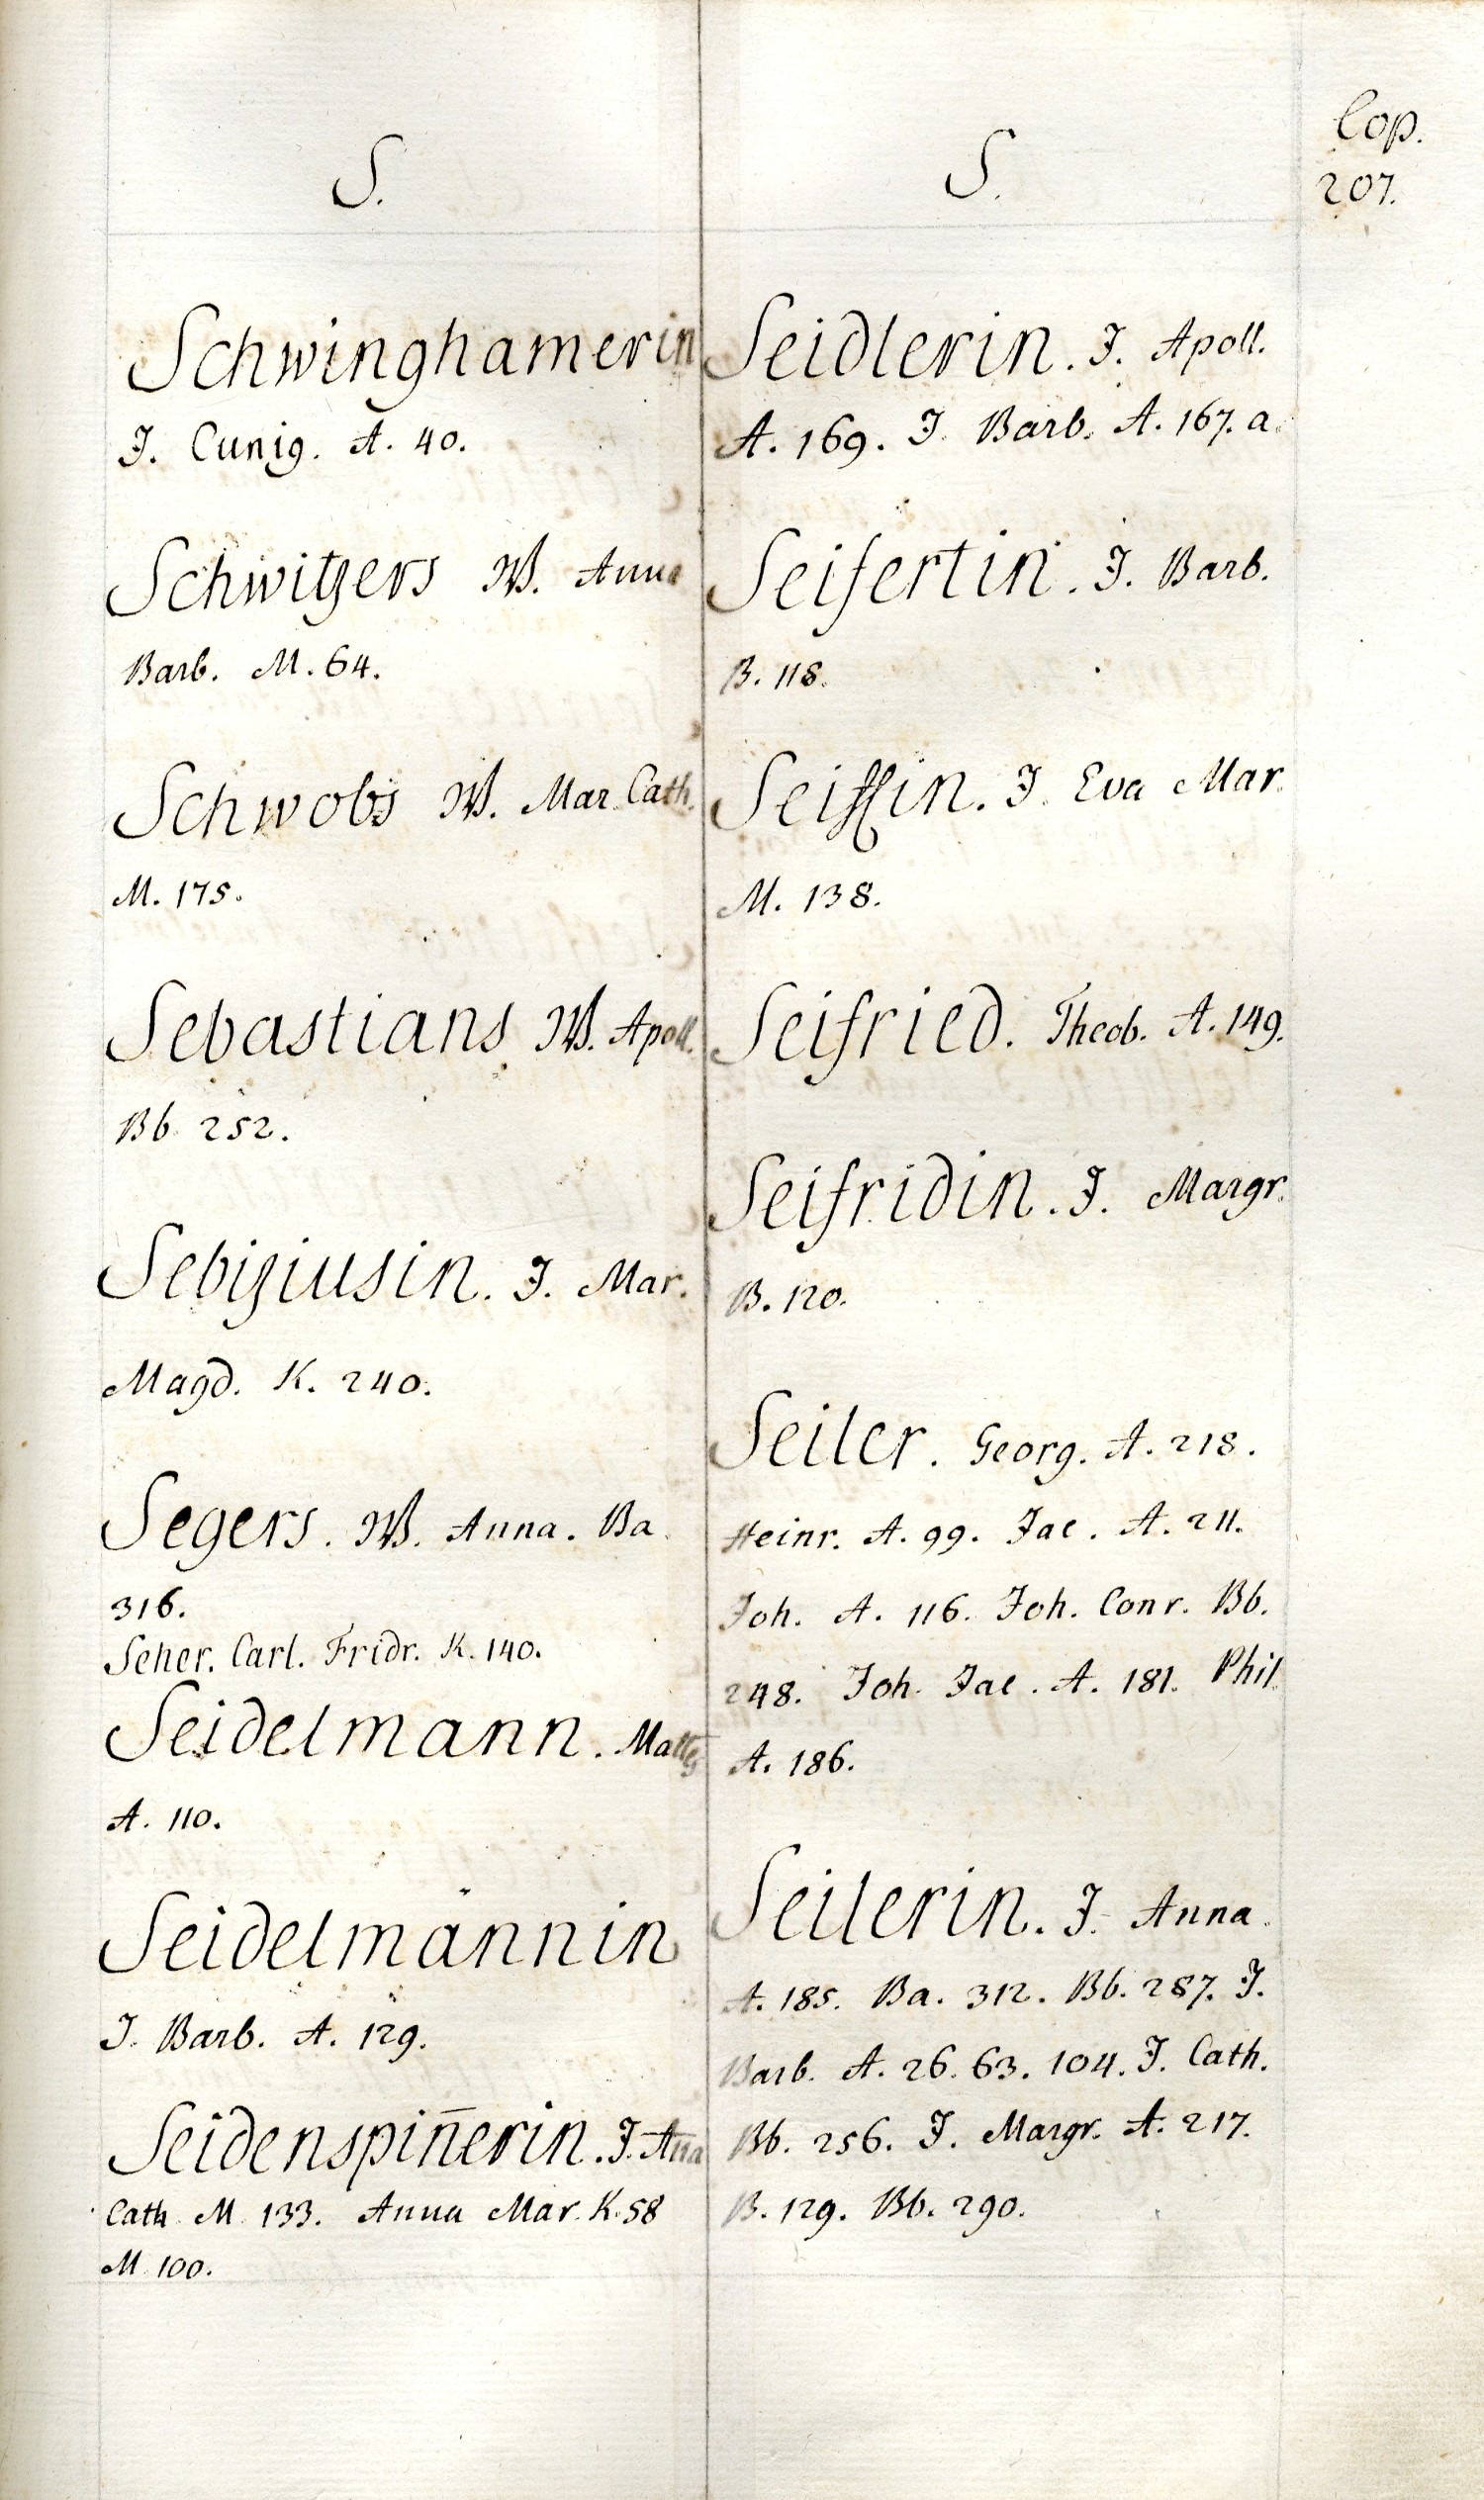 Cop.
207.
S.
Schwinghamerin
J. Cunig. A. 40.
Schwitzers W. Anna
Barb. M. 64.
Schwobs W. Mar. Cath.
M. 175.
Sebastians W. Apoll.
Bb. 252.
Sebiziusin. J. Mar.
Magd. K. 240.
Segers. W. Anna. Ba.
316.
Seher. Carl. Fridr. K. 140.
Seidelmann.
A. 110.
Seidelmännin
J. Barb. A. 129.
Seidenspiñerin. J. Aña
Cath. M. 133. Anna Mar. K. 58
M. 100.
S.
Seidlerin. J. Apoll.
A. 169. J. Barb. A. 167. a.
Seifertin. J. Barb.
B. 118.
Seiffin. J. Eva Mar.
M. 138.
Seifried. Theob. A. 149.
Seifridin. J. Margr.
B. 120.
Seiler. Georg. A. 218.
Heinr. A. 99. Jac. A. 211.
Joh. A. 116. Joh. Conr. Bb.
248. Joh. Jac. A. 181. Phil.
A. 186.
Seilerin. J. Anna.
A. 185. Ba. 312. Bb. 287. J.
Barb. A. 26. 63. 104. J. Cath.
Bb. 256. J. Margr. A. 217.
B. 129. Bb. 290.